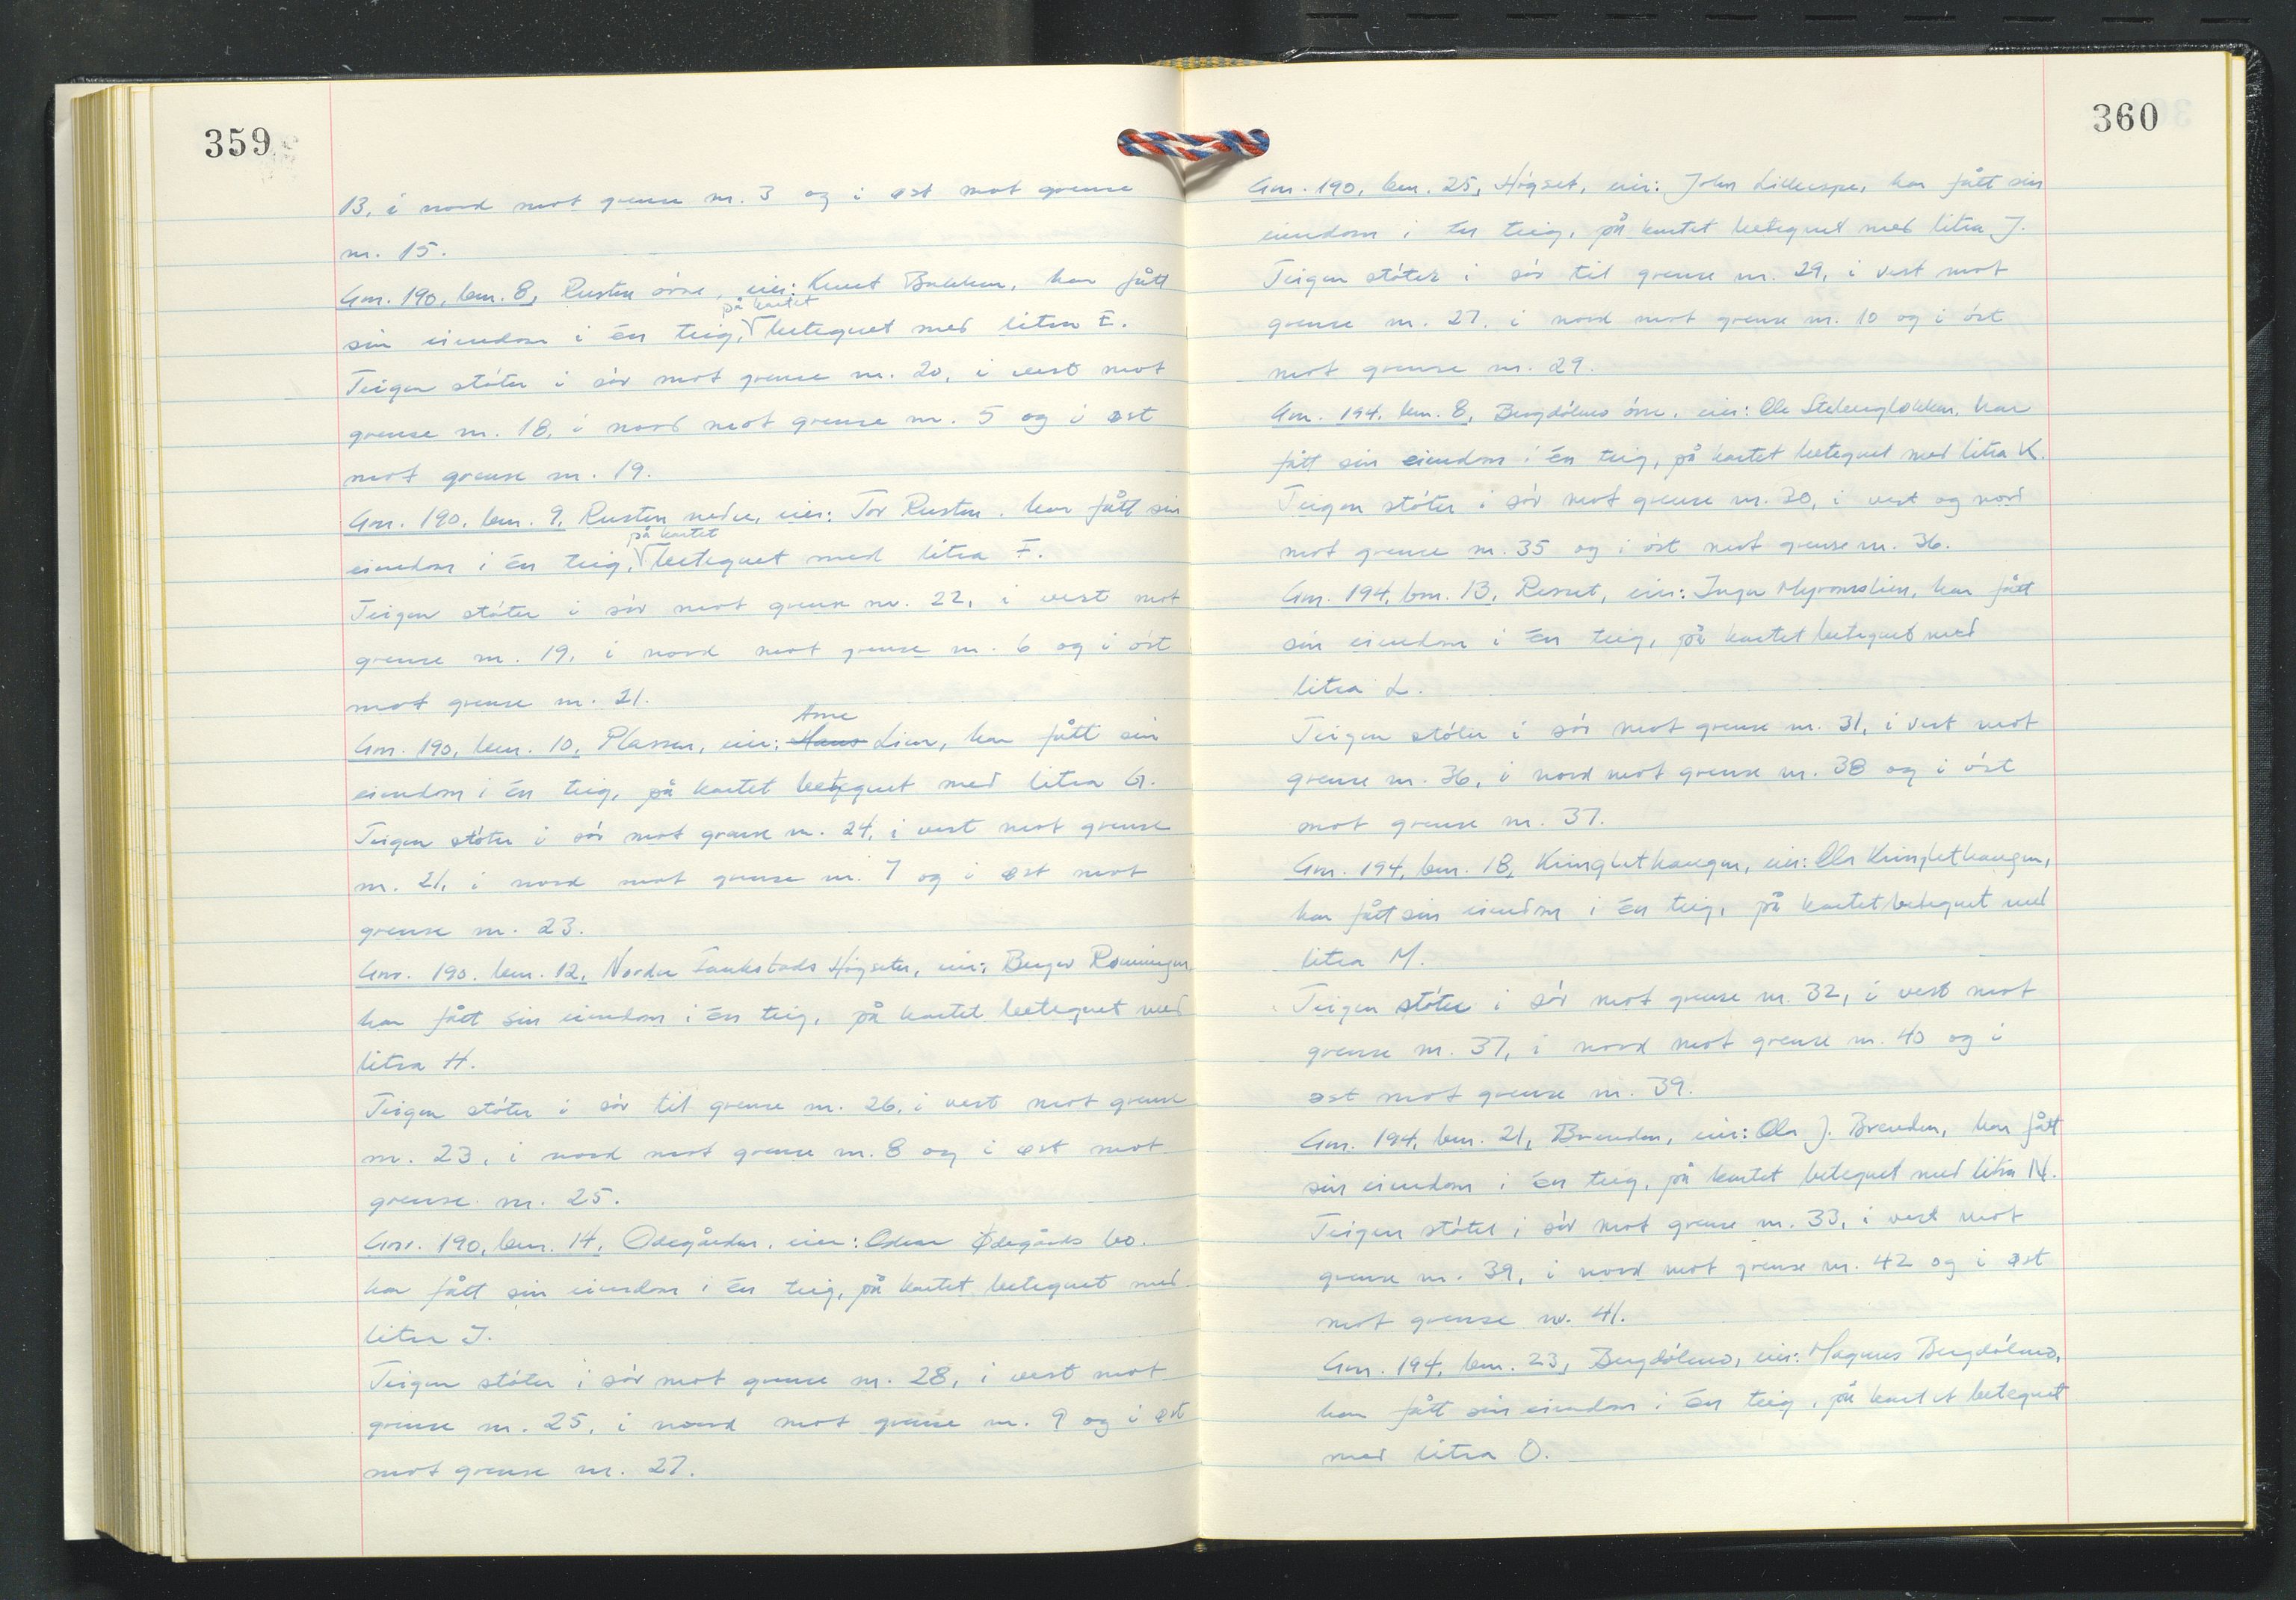 359
13, i nord mot grense nr. 3 og i øst mot grense
nr. 15.
Gnr. 190, bnr. 8, Rusten övre, eier: Knut Bakken, har fått
på kartet
sin eiendom i én teig, betegnet med litra E.
Teigen stöter i sör mot grense nr. 20, i vest mot
grense nr. 18, i nord mot grense nr. 5 og i øst
mot grense nr. 19.
Gnr. 190, bnr. 9, Rusten nedre, eier: Tor Rusten, har fått sin
på kartet
eiendom i én teig, betegnet med litra F.
Teigen stöter i sör mot grense nr. 22, i vest mot
grense nr. 19, i nord mot grense nr. 6 og i öst
mot grense nr. 21.
Arne
Gnr. 190, bnr. 10, Plassen, eier: Hans Lien, har fått sin
eiendom i én teig, på kartet betegnet med litra G.
Teigen stöter i sör mot grense nr. 24, i vest mot grense
nr. 21, i nord mot grense nr. 7 og i øst mot
grense nr. 23.
Gnr. 190, bnr. 12, Nordre Högseter, eier: Birger Rønningen,
har fått sin eiendom i én teig, på kartet betegnet med
litra H.
Teigen stöter i sör til grense nr. 26, i vest mot grense
nr. 23, i nord mot grense nr. 8 og i øst mot
grense nr. 25.
Gnr. 190, bnr. 14, Ödegården, eier: Ødegårds bo.
har fått sin eiendom i én teig, på kartet betegnet med
litra I.
Teigen stöter i sör mot grense nr. 28, i vest mot
grense nr. 25, i nord mot grense nr. 9 og i øst
mot grense nr. 27.
360
Gnr. 190, bnr. 25, Högset, eier: John Lilleespe, har fått sin
eiendom i én teig, på kartet betegnet med litra J.
Teigen stöter i sör til grense nr. 29, i vest mot
grense nr. 27, i nord mot grense nr. 10 og i öst
mot grense nr. 29.
Gnr. 194, bnr. 8, Bergdölmo övre, eier: Ole har
fått sin eiendom i én teig, på kartet betegnet med litra K.
Teigen stöter i sör mot grense nr. 30, i vest og nord
mot grense nr. 35 og i öst mot grense nr. 36.
Gnr. 194, bnr. 13, eier: Inga Myromslien, har fått
sin eiendom i én teig, på kartet betegnet med
litra L.
Teigen stöter i sör mot grense nr. 31, i vest mot
grense nr. 36, i nord mot grense nr. 38 og i öst
mot grense nr. 37.
Gnr. 194, bnr. 18, Kringlethaugen, eier: Ola Kringlethaugen,
har fått sin eiendom i én teig, på kartet betegnet med
litra M.
Teigen stöter i sör mot grense nr. 32, i vest mot
grense nr. 37, i nord mot grense nr. 40 og i
øst mot grense nr. 39.
Gnr. 194, bnr. 21, Brenden, eier: Ola J. Brenden, har fått
sin eiendom i én teig, på kartet betegnet med litra N.
Teigen stöter i sör mot grense nr. 33, i vest mot
grense nr. 39, i nord mot grense nr. 42 og i øst
mot grense nr. 41.
Gnr. 194, bnr. 23, Bergdölmo, eier: Magnus Bergdölmo,
har fått sin eiendom i én teig, på kartet betegnet
med litra O.